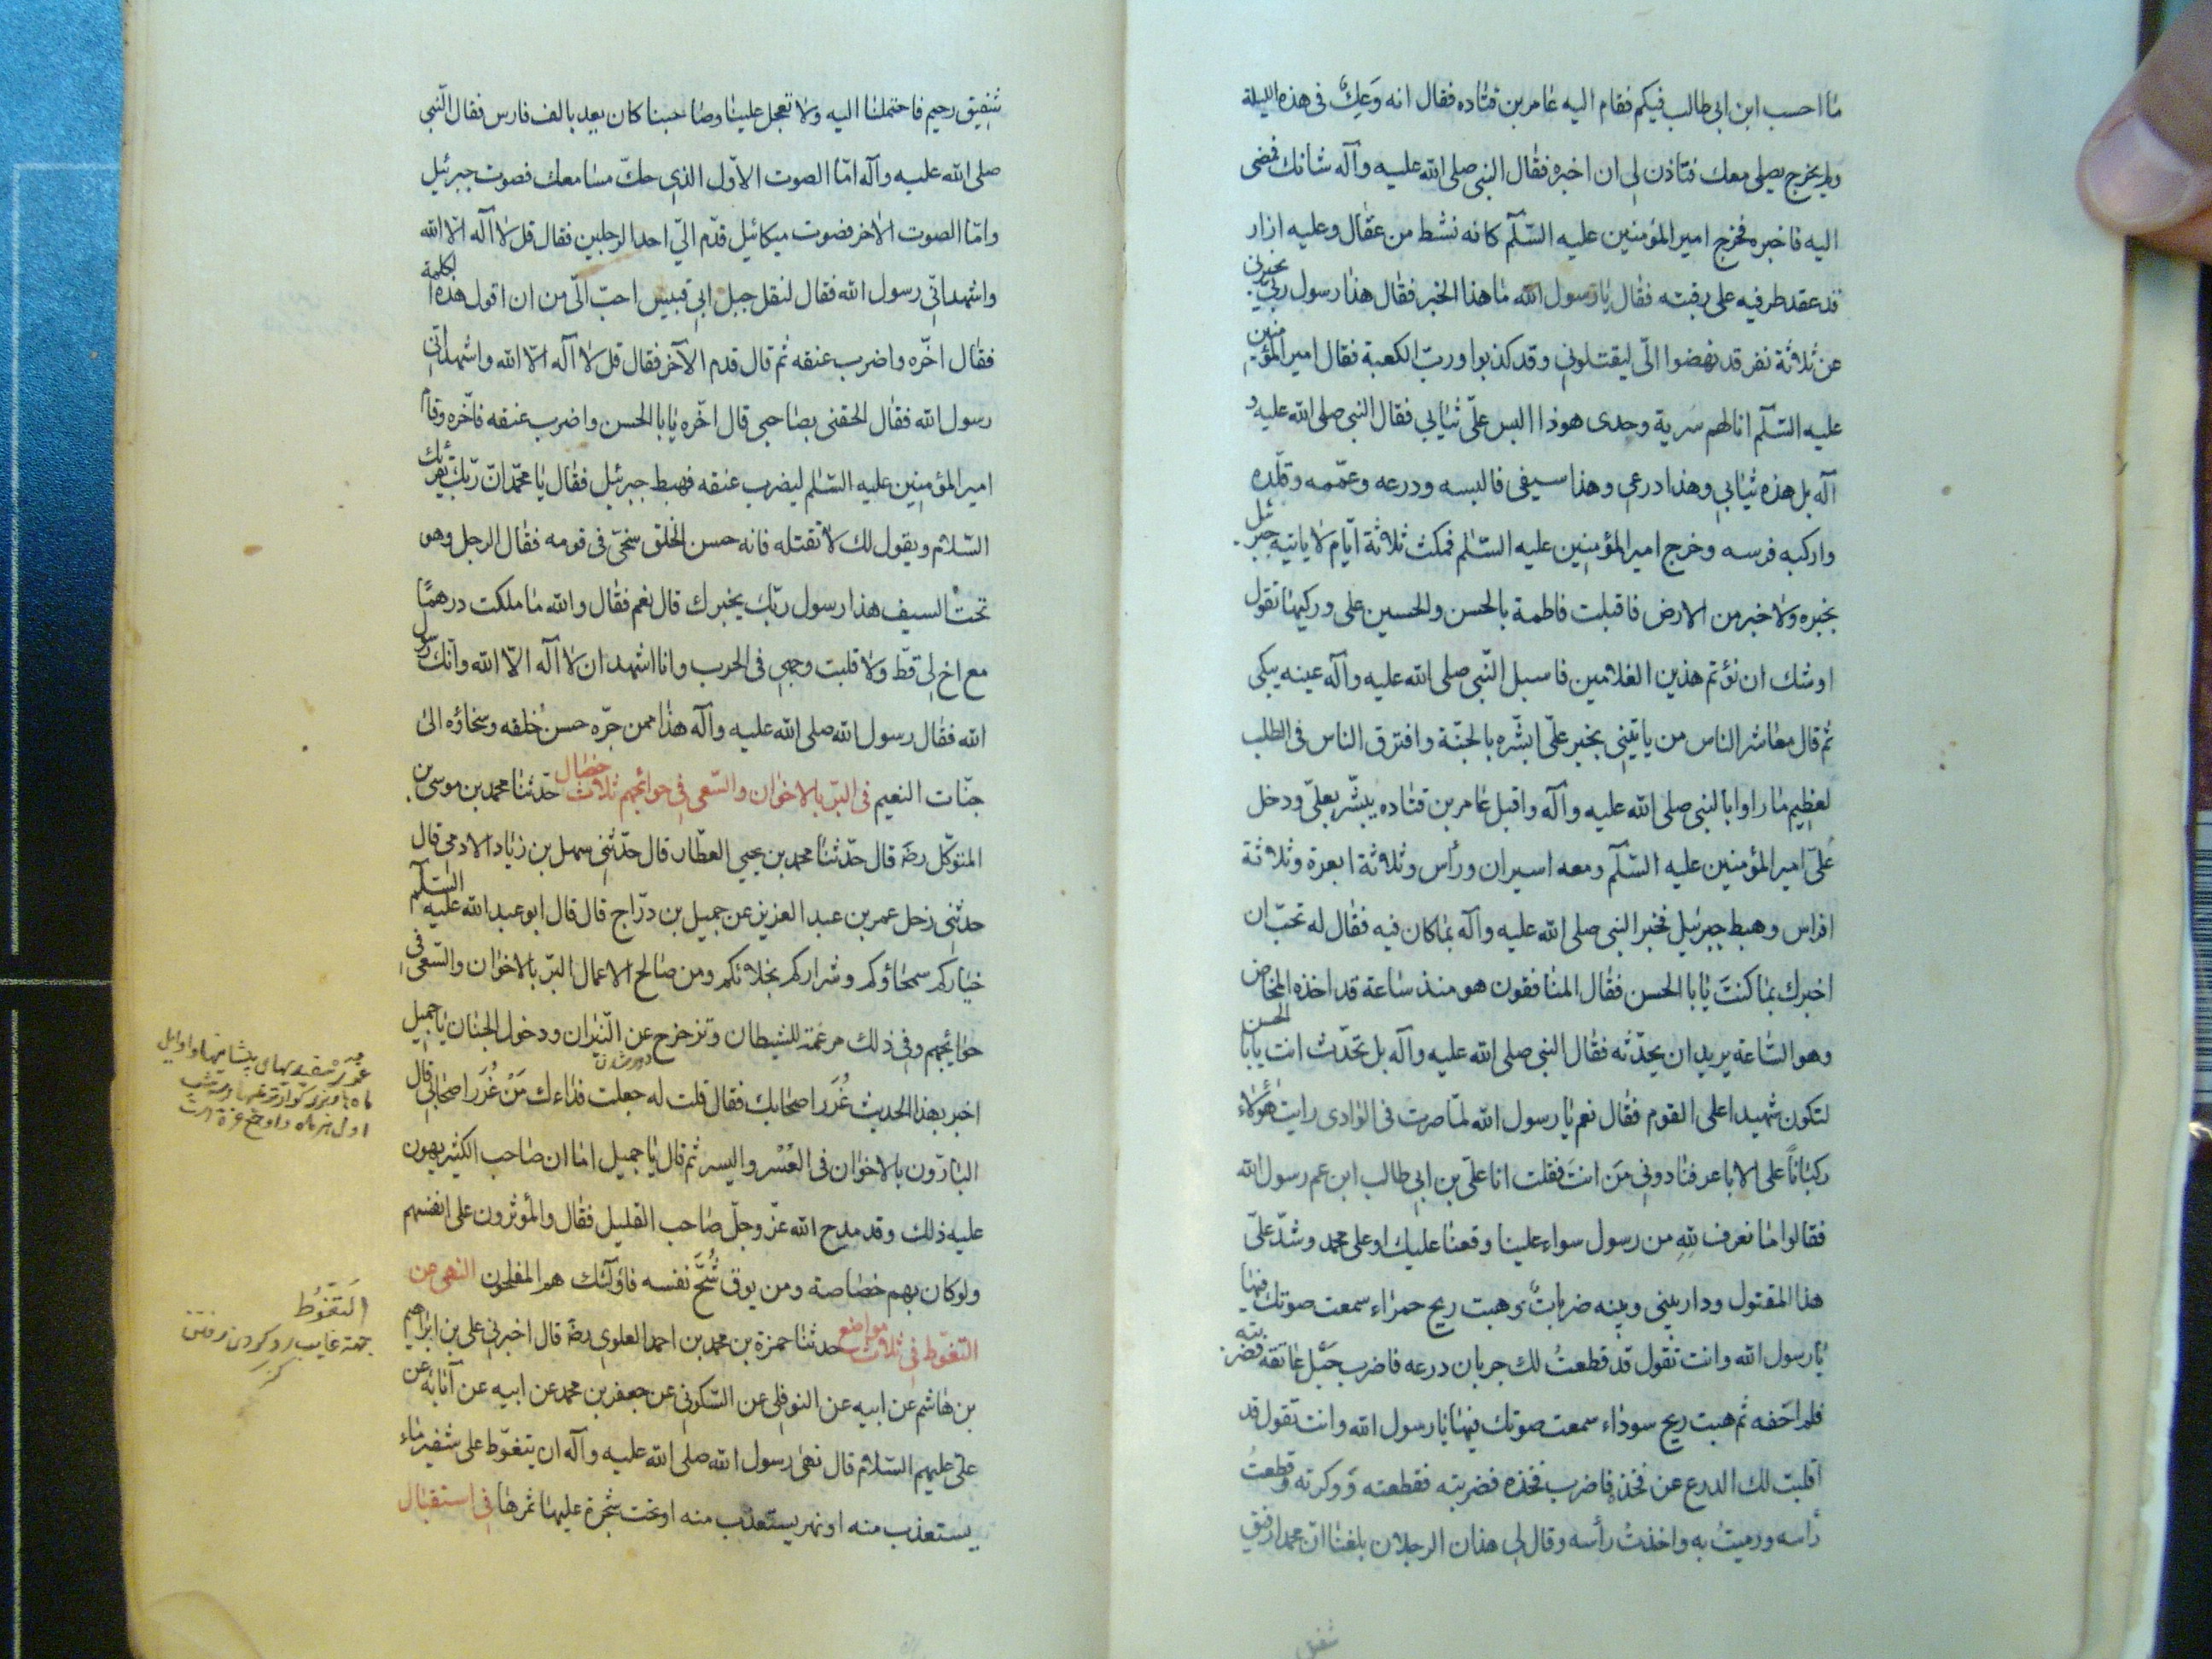 ما احسب ابن ابی طالب فیکم فقام الیه عامر بن قتاده فقال انه وَعِكٌ فی هذه اللیلة
ولم یخرج یصلی معك فتاذن لی ان اخبره فقال النبی صلی الله علیه وآله شانك فمضی
الیه فاخبره فخرج امیر المؤمنین علیه السّلم کانه نشط من عقال وعلیه ازار
قد عقد طرفیه علی رقبته فقال یا رسول الله ما هذا الخبر فقال هذا رسول ربّی یخبرنی
عن ثلاثة نفر قد نهضوا الیّ لیقتلونی وقد کذبوا وربّ الکعبة فقال امیر المؤمنین
علیه السّلم انا لهم سَریة وحدی هوذا البس علیّ ثیابی فقال النبی صلی الله علیه و
آله بل هذه ثیابی وهذا درعی وهذا سیفی فالبسه ودرعه وعمّمه وقلّده
وارکبه فرسه وخرج امیر المؤمنین علیه السّلم فمکث ثلاثة ایّام لا یاتیه جبرئیل
بخبره ولا خبر من الارض فاقبلت فاطمة بالحسن والحسین علی ورکیها تقول
اوشك ان نؤتم هذین الغلامین فاسبل النّبی صلی الله علیه وآله عینه یبکی
ثم قال معاشر الناس من یاتینی بخبر علیّ ابشّره بالجنّة وافترق الناس فی الطلب
لعظیم ما راوا بالنبی صلی الله علیه وآله واقبل عامر بن قتاده یبشّر بعلیّ ودخل
علیّ امیر المؤمنین علیه السّلم ومعه اسیران ورأس وثلاثة ابعرة وثلاثة
افراس وهبط جبرئیل فخبر النبی صلی الله علیه وآله بما کان فیه فقال له تحبّ ان
اخبرك بما کنتَ یا با الحسن فقال المنافقون هو منذ ساعة قد اخذه المخاض
وهو السّاعة یرید ان یحدّثه فقال النبی صلی الله علیه وآله بل تحدّث انت یا با الحسن
لتکون شهیدا علی القوم فقال نعم یا رسول الله لمّا صرت فی الوادی رایت هؤلاء
رکبانًا علی الاباعر فنادونی مَن انتَ فقلت انا علیّ بن ابی طالب ابن عم رسول الله
فقالوا ما نعرف لله من رسول سواء علینا وقعنا علیك او علی محمد وشدّ علیّ
هذا المقتول ودار بینی وبینه ضرباتٌ وهبت ریح حمراء سمعت صوتك فیها
یا رسول الله وانت تقول قد قطعتُ لك جربان درعه فاضرب حبْل عاتقه فضربته
فلم احفه ثم هبت ریح سوداء سمعت صوتك فیها یا رسول الله وانت تقول قد
اقلبت لك الدرع عن فخذه فاضرب فخذه فضربته فقطعته ووکزته وقطعتُ
رأسه ورمیتُ به واخذتُ رأسه وقال لی هذان الرجلان بلغنا انّ محمدا رفیق
شفیق
شفیق رحیم فاحتملنا الیه ولا تعجل علینا وصاحبنا کان یعدّ بالف فارس فقال النّبی
صلی الله علیه وآله امّا الصوت الاوّل الذی حكّ مسامعك فصوت جبرئیل
وامّا الصوت الاخر فصوت میکائیل قدّم الیّ احد الرجلین فقال قل لا اله الّا الله
واشهد انّی رسول الله فقال لنقل جبل ابی قبیس احبّ الیّ من ان اقول هذه الکلمة
فقال اخّره واضرب عنقه ثم قال قدم الآخر فقال قل لا اله الّا الله واشهد انّی
رسول الله فقال الحقنی بصاحبی قال اخّره یا با الحسن واضرب عنقه فاخّره وقام
امیر المؤمنین علیه السّلم لیضرب عنقه فهبط جبرئیل فقال یا محمّد انّ ربّك یقرئك
السّلام ویقول لك لا تقتله فانه حسن الخُلق سخیّ فی قومه فقال الرجل وهو
تحت السیف هذا رسول ربّك یخبرك قال نعم فقال والله ما ملکت درهمًا
مع اخ لی قطّ ولا قلبت وجهی فی الحرب وانا اشهد ان لا اله الّا الله وانّك رسول
الله فقال رسول الله صلی الله علیه وآله هذا ممن جرّه حسن خُلقه وسخاؤه الی
جنّات النعیم فی البرّ بالاخوان والسّعی فی حوائجهم ثلاث خصال حدّثنا محمد بن موسی بن
المتوکّل رضه قال حدّثنا محمد بن یحیی العطّار قال حدّثنی سهل بن زیاد الادمی قال
حدثنی رجل عمر بن عبد العزیز عن جمیل بن درّاج قال قال ابو عبد الله علیه السّلم
خیارکم سمحاؤکم وشرارکم بخلائکم ومن صالح الاعمال البرّ بالاخوان والسّعی فی
حوایجهم وفی ذلك مرغمة للشیطان وتزحزح عن النّیران ودخول الجنان یا جمیل
اخبر بهذا الحدیث غُرَر اصحابك فقال قلت له جعلت فداءك مَنْ غُرَر اصحابی قال
البارّون بالاخوان فی العُسْر والیسر ثم قال یا جمیل اما ان صاحب الکثیر یهون
علیه ذلك وقد مدح الله عزّ وجلّ صاحب القلیل فقال والمؤثرون علی انفسهم
ولو کان بهم خصاصة ومن یوق شُحَّ نفسه فاولٓئك هم المفلحون النهی عن
التغوّط فی ثلاث مواضع حدثنا حمزة بن محمد بن احمد العلوی رضه قال اخبرنی علی بن ابراهیم
بن هاشم عن ابیه عن النوفلی عن السّکونی عن جعفر بن محمد عن ابیه عن آبائه عن
علیّ علیهم السّلام قال نهی رسول الله صلی الله علیه وآله ان یتغوّط علی شفیر ماء
یستعذب منه او نهر یستعذب منه او تحت شجرة علیها ثمرها فی استقبال
غُرَر سفیدیهای پیشانیها واوایل
التغوّط